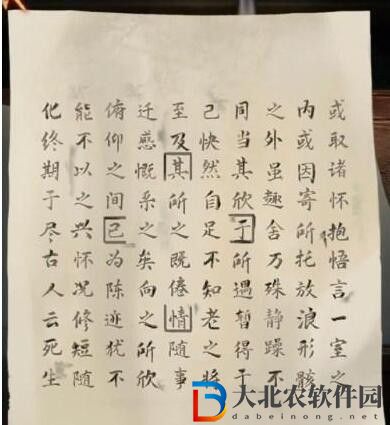 或取诸怀抱悟言一室之
内或因寄所托放浪形骸
之外虽趣舍万殊静躁不
同当其欣于所遇暂得于
己快然自足不知老之将
至及其所之既倦情随事
迁感慨系之矣向之所欣
俯仰之间已为陈迹犹不
能不以之兴怀况修短随
化终期于尽古人云死生
大北农软件园
dabeinong.com